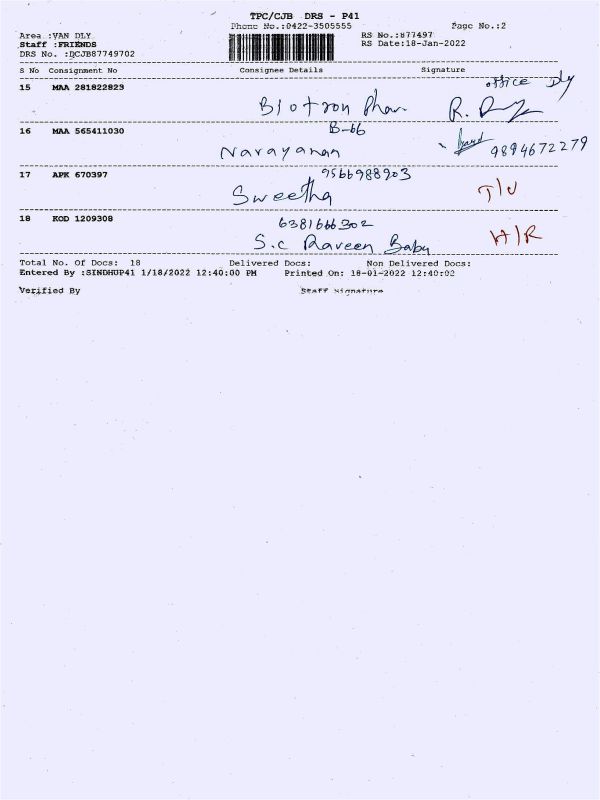 TPC/CJB DRS - P41
Phone No.:0422-3505555 Page No.:2
Area :VAN DLY RS No.:877497
Staff :FRIENDS RS Date:18-Jan-2022
DRS No. :DCJB87749702
S No Consignment No Consignee Details Signature
office Dly
15 MAA 281822823
Biotron Phar.
16 MAA 565411030 B-66
Narayanan 9894672279
17 APK 670397 9566988903
Sweetha T/U
18 KOD 1209308 6381666302
S.c Raveen Baby H/R
Total No. Of Docs: 18 Delivered Docs: Non Delivered Docs:
Entered By :SINDHUP41 1/18/2022 12:40:00 PM Printed On: 18-01-2022 12:40:02
Verified By Staff Signature